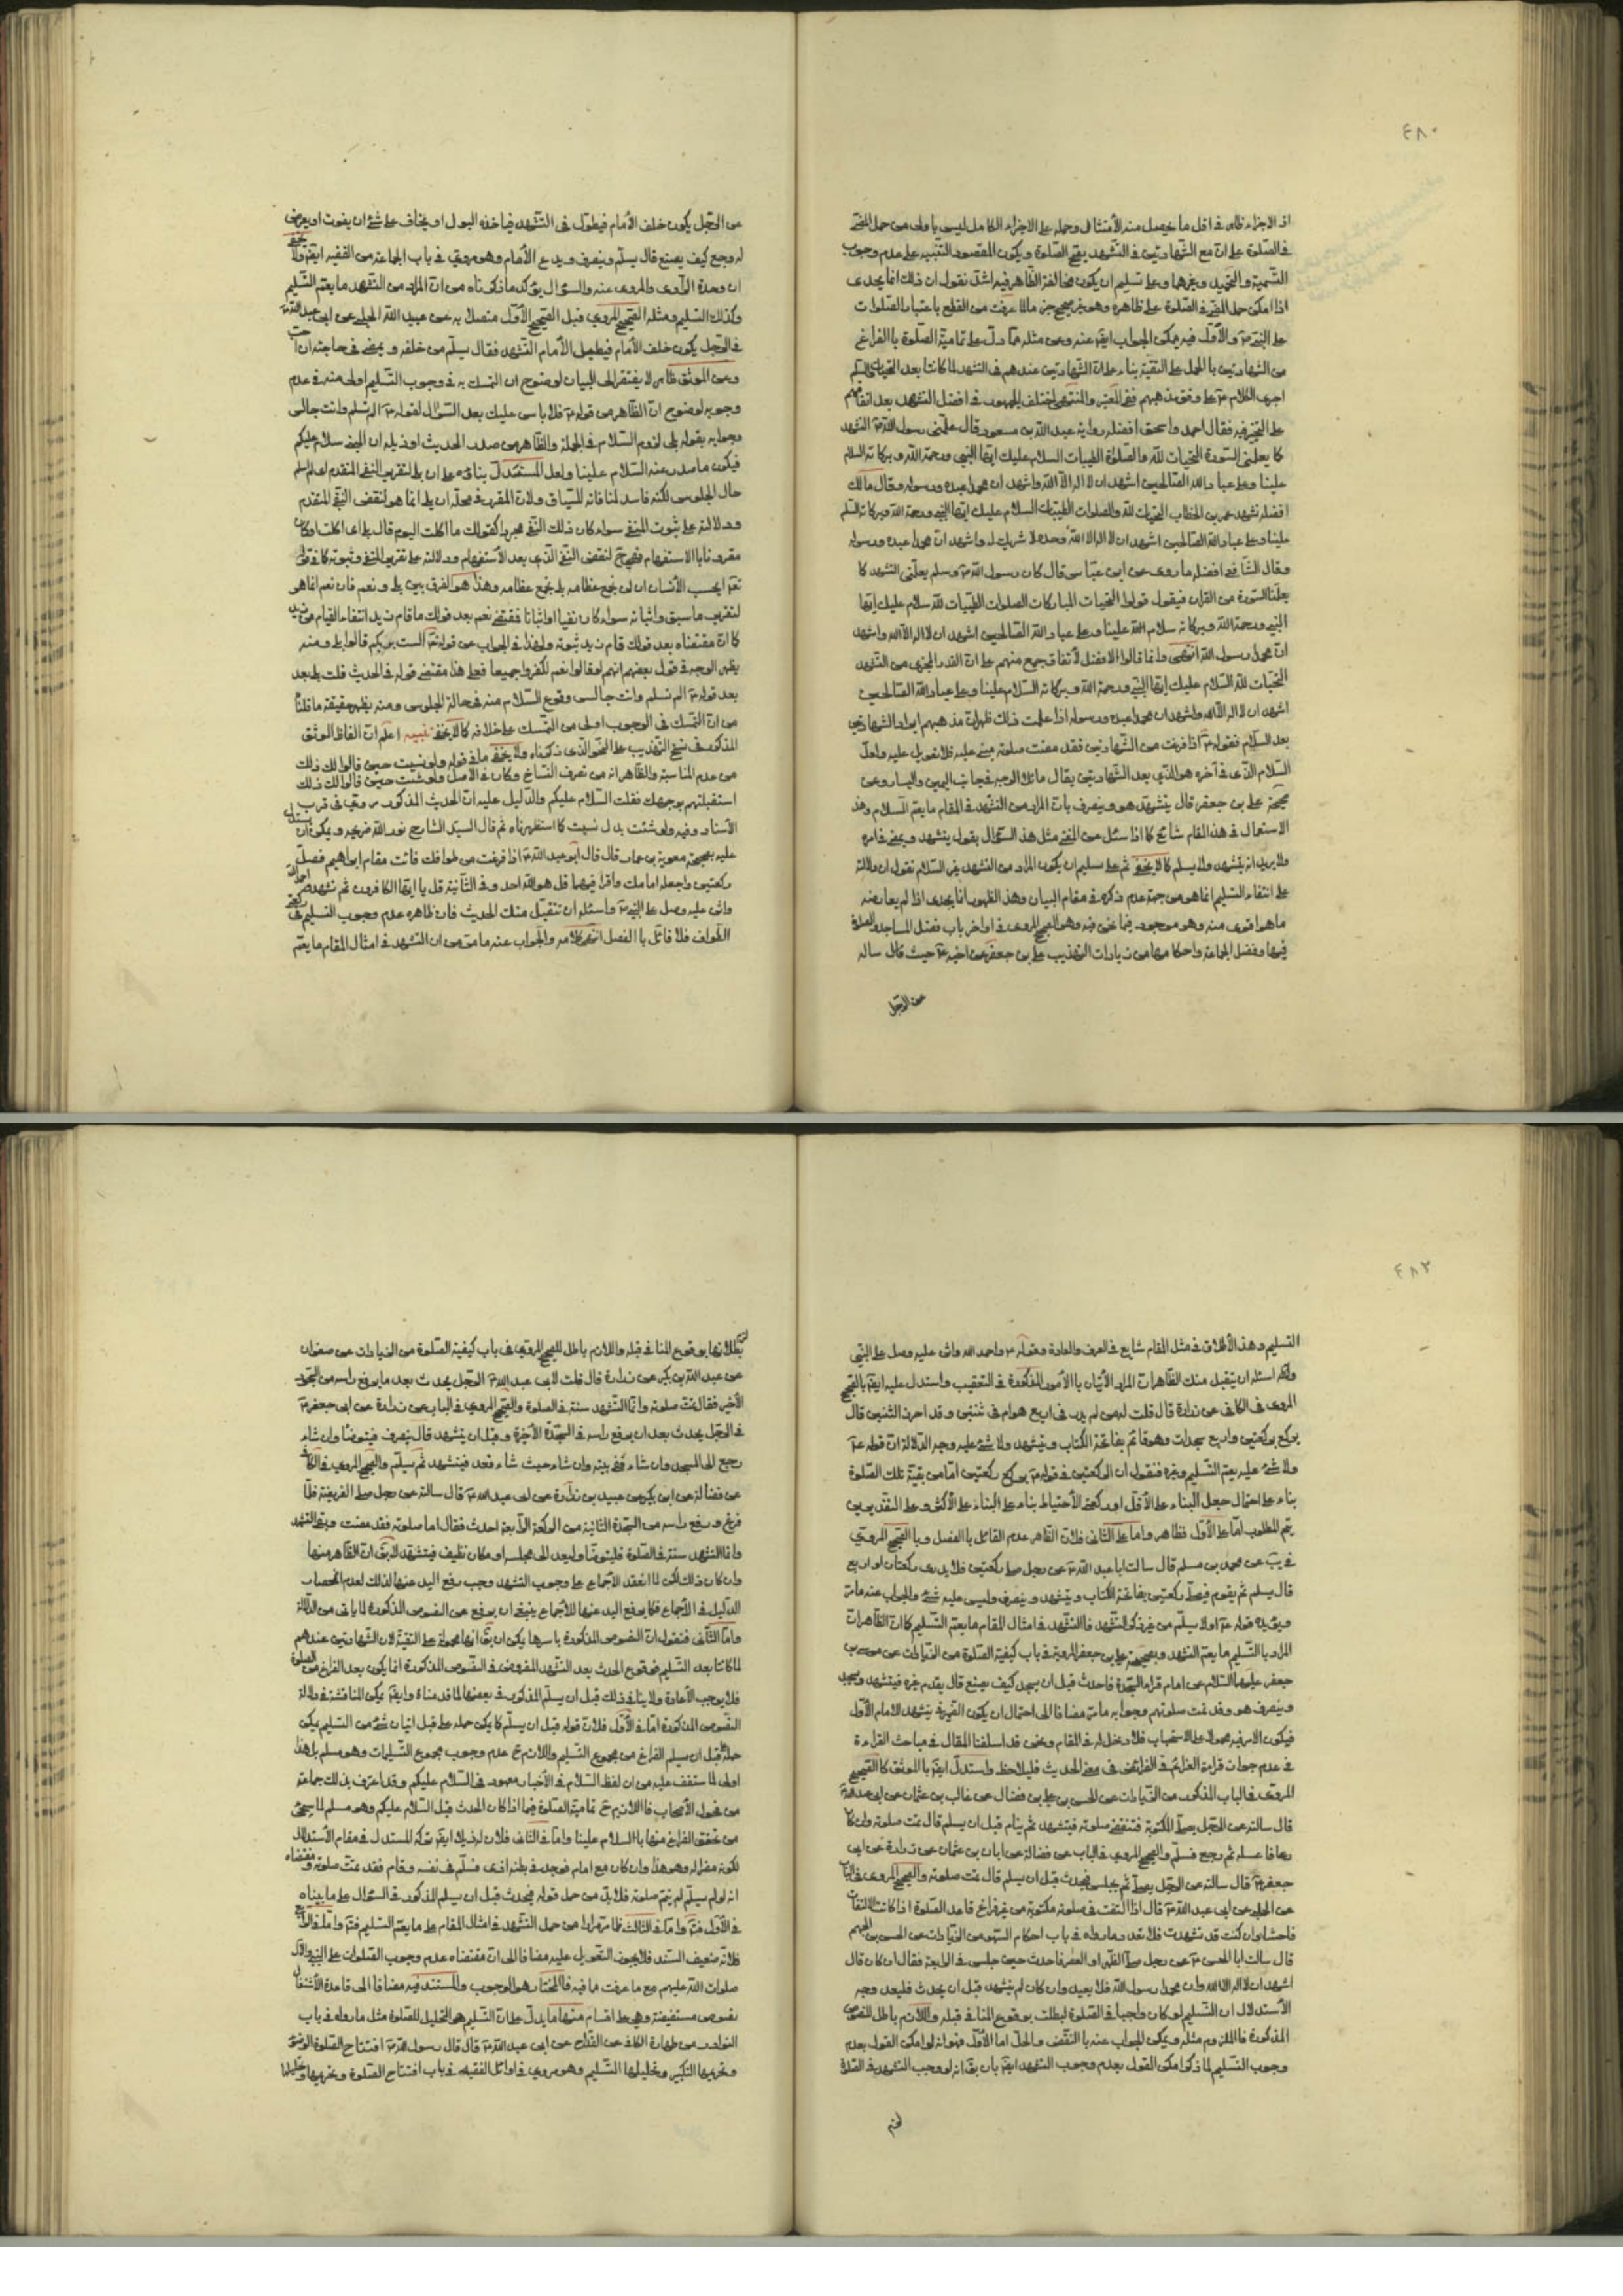 ٤٨٠
اذ الاجزاء ظاهر فى اقل ما يحصل منه الأمتثال وحمله على الاجزاء الكامل ليس باولى من حمل
فى الصلوة على ان مع الشهادتين فى التشهد يتم الصلوة ويكون المقصود التنبيه على عدم وجوب
التسمية والتحميد وغيرهما وعلى تسليم ان يكون مخالفة الظاهر فيه اشد نقول ان ذلك انما يجدى
اذا امكن حمل فى الصلوة على ظاهره وهو غير صحيح جزما لما عرفت من القطع باعتبار الصلوات
على النبى والأول فيه يمكن الجواب ايضا عنه وعن مثله مما دل على تمامية الصلوة بالفراغ
من الشهادتين بالحمل على التقية بناء على ان الشهادتين عندهم فى التشهد لما كانتا بعد التحيات
اجرى الكلام على وفق مذهبهم ففى المعتبر والمنتهى اختلف الجمهور فى افضل التشهد بعد اتفاقهم
على التخيير فيه فقال احمد واسحق افضله رواية عبد الله بن مسعود قال علمنى رسول الله التشهد
كما يعلمنى السورة التحيات لله والصلوات الطيبات السلام عليك ايها النبى ورحمة الله وبركاته السلام
علينا وعلى عباد الله الصالحين اشهد ان لا اله الا الله واشهد ان محمدا عبده ورسوله وقال مالك
افضله تشهد عمر بن الخطاب التحيات لله والصلوات الطيبات السلام عليك ايها النبى ورحمة الله وبركاته السلم
علينا وعلى عباد الله الصالحين اشهد ان لا اله الا الله وحده لا شريك له واشهد ان محمدا عبده ورسوله
وقال الشافعى افضله ما روى عن ابن عباس قال كان رسول الله وسلم يعلمنى التشهد كما
يعلمنا السورة من القران فيقول قولوا التحيات المباركات الصلوات الطيبات لله سلام عليك ايها
النبى ورحمة الله وبركاته سلام الله علينا وعلى عباد الله الصالحين اشهد ان لا اله الا الله واشهد
ان محمدا رسول الله انتهى وانما قالوا الافضل لأتفاق جميع منهم على ان القدر المجزى من التشهد
التحيات لله السلام عليك ايها النبى ورحمة الله وبركاته السلام علينا وعلى عباد الله الصالحين
اشهد ان لا اله الا الله واشهد ان محمدا عبده ورسوله اذا علمت ذلك ظهر ان مذهبهم ايراد الشهادتين
بعد السلام فقوله اذا فرغت من الشهادتين فقد مضت صلوته مبنى عليه فلا تعويل عليه ولعل
السلام الذى فى آخره هو الذى بعد الشهادتين يقال مائلا لوجه فى جانب اليمين واليسار وعن
صحيحة على بن جعفر قال يتشهد هو وينصرف بان المراد من التشهد فى المقام ما يعم السلام وهذ
الاستعمال فى هذا المقام شائع كما اذا سئل من المفتى مثل هذ السؤال يقول يتشهد ويمضى فى امره
ولا يريد انه يتشهد ولا يسلم كما لا يخفى ثم على تسليم ان يكون المراد من التشهد غير السلام نقول ان دلالته
على انتفاء التسليم انما هو من جهة عدم ذكره فى مقام البيان وهذ الظهور انما يجدى اذا لم يعارضه
ما هو اقوى منه وهو موجود فيما نحن فيه وهو الصحيح المروى فى اواخر باب فضل المساجد والصلوة
فيها وفضل الجماعة واحكامها من زيادات التهذيب على بن جعفر عن اخيه حيث قال سالته
عن الرجل
عن الرجل يكون خلف الأمام فيطول فى التشهد فياخذه البول او يخاف على شئ ان يفوت او يعرض
له وجع كيف يصنع قال يسلم وينصرف ويدع الأمام وهو مروى فى باب الجماعة من الفقيه ايضا ولا يخفى
ان وحدة الراوى والمروى عنه والسؤال يؤكد ما ذكرناه من ان المراد من التشهد ما يعم التسليم
وكذلك التسليم ومثله الصحيح المروى قبل الصحيح الأول متصلا به عن عبيد الله الحلبى عن ابى عبد الله
فى الرجل يكون خلف الأمام فيطيل الأمام التشهد فقال يسلم من خلفه ويمضى فى حاجته ان احب
وعن الموثق ظاهر لا يفتقر الى البيان لوضوح ان التمسك به فى وجوب التسليم اولى منه فى عدم
وجوبه لوضوح ان الظاهر من قوله فلا باس عليك بعد السؤال لقوله الم تسلم وانت جالس
وجوابه بقوله بلى لزوم السلام فى الجملة والظاهر من صدر الحديث او ذيله ان سلام عليكم
فيكون ما صدر عنه السلام علينا ولعل المستدل بناؤه على ان بلى لتقرير النفى المتقدم لم اسلم
حال الجلوس لكنه فاسد لمنافاته للسياق ولان المقرر فى محله ان بلى انما هو لنقض النفى المتقدم
ودلالته على ثبوت المنفى سواء كان ذلك النفى مجردا كقولك ما اكلت اليوم قال بلى اى اكلت او كان
مقرونا بالاستفهام فهى ح لنقض النفى الذى بعد الأستفهام ودلالته على تقرير المنفى وثبوته كما فى قوله
تعم ايحسب الأنسان ان لن نجمع عظامه بلى نجمع عظامه وهذا هو الفرق بين بلى ونعم فان نعم انما هو
لتقرير ما سبق واثباته سواء كان نفيا او اثباتا فمقتضى نعم بعد قولك ما قام زيد انتفاء القيام من زيد
كما ان مقتضاه بعد قولك قام زيد ثبوته ولهذا فى الجواب عن قوله تعم الست بربكم قالوا بلى ومنه
يظهر الوجه فى قول بعضهم انهم لو قالوا نعم لكفروا جميعا فعلى هذا مقتضى قوله فى الحديث قلت بلى بعد
بعد قوله الم تسلم وانت جالس وقوع السلام منه فى حالة الجلوس ومنه يظهر حقيقة ما قلنا
من ان التمسك فى الوجوب اولى من التمسك على خلافه كما لا يخفى تنبيه اعلم ان الفاظ الموثق
المذكور فى نسخ التهذيب على النحو الذى ذكرناه ولا يخفى ما فى قوله ولو نسيت حين قالوا لك ذلك
من عدم المناسبة والظاهر انه من تصرف النساخ وكان فى الأصل ولو شئت حين قالوا لك ذلك
استقبلتهم بوجهك فقلت السلام عليكم والدليل عليه ان الحديث المذكور مروى فى قرب
الأسناد وفيه ولو شئت بدل نسيت كما استظهرناه ثم قال السيد الشارح نور الله ضريحه ويمكن ان يستدل
عليه بصحيحة معوية بن عمار قال قال ابو عبد الله اذا فرغت من طوافك فائت مقام ابراهيم فصل
ركعتين واجعله امامك واقرا فيهما قل هو الله احد وفى الثانية قل يا ايها الكافرون ثم تشهد واحمد الله
واثن عليه وصل على النبى واسئله ان تتقبل منك الحديث فان ظاهره عدم وجوب التسليم فى ركعتى
الطواف فلا قائل بالفصل انتهى كلامه والجواب عنه ما مر من ان التشهد فى امثال المقام ما يعم
٤٨٢
التسليم وهذ الأطلاق فى مثل المقام شايع فى العرف والعادة وقوله واحمد الله واثن عليه وصل على النبى
واسئله ان يتقبل منك الظاهر ان المراد الأتيان بالأمور المذكورة فى التعقيب واستدل عليه ايضا بالصحيح
المروى فى الكافى عن زرارة قال قلت له من لم يدر فى اربع هو ام فى ثنتين وقد احرز الثنتين قال
يركع ركعتين واربع سجدات وهو قائم بفاتحة الكتاب ويتشهد ولا شئ عليه وجه الدلالة ان قوله
ولا شئ عليه يعم التسليم وغيره فنقول ان الركعتين فى قوله يركع ركعتين اما من بقية تلك الصلوة
بناء على احتمال جعل البناء على الأقل او ركعتى الأحتياط بناء على البناء على الأكثر وعلى التقديرين
يتم المطلوب اما على الأول فظاهر واما على الثانى فلان الظاهر عدم القائل بالفصل وبالصحيح المروى
فى يب عن محمد بن مسلم قال سالت ابا عبد الله عن رجل صلى ركعتين فلا يدرى ركعتان او اربع
قال يسلم ثم يقوم فيصلى ركعتين بفاتحة الكتاب ويتشهد وينصرف وليس عليه شئ والجواب عنه ما مر
ويؤيده قوله اولا يسلم من غير ذكر التشهد فالتشهد فى امثال المقام ما يعم التسليم كما ان الظاهر ان
المراد بالتسليم ما يعم التشهد وبصحيحة على بن جعفر المروية فى باب كيفية الصلوة من الزيادات عن موسى بن
جعفر عليهما السلام عن امام قرا السجدة فاحدث قبل ان يسجد كيف يصنع قال يقدم غيره فيتشهد ويسجد
وينصرف هو وقد تمت صلوتهم وجوابه ما مر مضافا الى احتمال ان يكون الضمير فى يتشهد للامام الأول
فيكون الامر فيه محمولا على الاستحباب فلا دخل له فى المقام ونحن قد اسلفنا المقال فى مباحث القراءة
فى عدم جواز قراءة العزائم فى الفرائض فى معنى الحديث فليلاحظ واستدل ايضا بالموثق كالصحيح
المروى فى الباب المذكور من الزيادات عن الحسن بن على بن فضال عن غالب بن عثمان عن ابى عبد الله
قال سالته عن الرجل يصلى المكتوبة فتنقضى صلوته فيتشهد ثم ينام قبل ان يسلم قال تمت صلوته وان كان
رعافا غسله ثم رجع فسلم والصحيح المروى فى الباب عن فضالة عن ابان بن عثمان عن زرارة عن ابى
جعفر قال سالته عن الرجل يصلى ثم يجلس فيحدث قبل ان يسلم قال تمت صلوته والصحيح المروى فى الباب
عن الحلبى عن ابى عبد الله قال اذا التفت فى صلوة مكتوبة من غير فراغ فاعد الصلوة اذا كان الالتفات
فاحشا وان كنت قد تشهدت فلا تعد وما رواه فى باب احكام السهو من الزيادات عن الحسن بن الجهم
قال سالت ابا الحسن عن رجل صلى الظهر او العصر فاحدث حين جلس فى الرابعة فقال ان كان قال
اشهد ان لا اله الا الله وان محمدا رسول الله فلا يعيد وان كان لم يتشهد قبل ان يحدث فليعد وجه
الأستدلال ان التسليم لو كان واجبا فى الصلوة لبطلت بوقوع المنافى قبله واللازم باطل للنصوص
المذكورة فالملزوم مثله ويمكن الجواب عنه بالنقض والحل اما الأول فهو انه لو امكن القول بعدم
وجوب التسليم لما ذكر امكن القول بعدم وجوب التشهد ايضا بان يقال انه لو وجب التشهد فى الصلوة
لزم
لزم بطلانها بوقوع المنافى قبله واللازم باطل للصحيح المروى فى باب كيفية الصلوة من الزيادات عن صفوان
عن عبد الله بن بكير عن زرارة قال قلت لابى عبد الله الرجل يحدث بعد ما يرفع راسه من السجود
الأخير فقال تمت صلوته وانما التشهد سنة فى الصلوة والصحيح المروى فى الباب عن زرارة عن ابى جعفر
فى الرجل يحدث بعد ان يرفع راسه فى السجدة الأخيرة وقبل ان يتشهد قال ينصرف فيتوضا وان شاء
رجع الى المسجد وان شاء ففى بيته وان شاء حيث شاء قعد فيتشهد ثم يسلم والصحيح المروى فى الكافى
عن فضالة عن ابن بكير عن عبيد بن زرارة عن ابى عبد الله قال سالته عن رجل صلى الفريضة فلما
فرغ ورفع راسه من السجدة الثانية من الركعة الرابعة احدث فقال اما صلوته فقد مضت وبقى التشهد
وانما التشهد سنة فى الصلوة فليتوضا وليعد الى مجلسه او مكان نظيف فيتشهد لا يقال ان الظاهر منها
وان كان ذلك لكن لما انعقد الأجماع على وجوب التشهد وجب رفع اليد عنها لذلك لعدم انحصار
الدليل فى الأجماع فكما يرفع اليد عنها للأجماع ينبغى ان يرفع عن النصوص المذكورة لما ياتى من الدلالة
واما الثانى فنقول ان النصوص المذكورة باسرها يمكن ان يقال انها محمولة على التقية لان الشهادتين عندهم
لما كانتا بعد التسليم فوقوع الحدث بعد التشهد المفروض فى النصوص المذكورة انما يكون بعد الفراغ من الصلوة
فلا يوجب الأعادة ولا ينافى ذلك قبل ان يسلم المذكور فى بعضها لما قدمناه وايضا يمكن المناقشة فى دلالة
النصوص المذكورة اما فى الأول فلان قوله قبل ان يسلم كما يمكن حمله على قبل اتيان شئ من التسليم يمكن
حمله على قبل ان يسلم الفراغ من مجموع التسليم واللازم ح عدم وجوب مجموع التسليمات وهو مسلم بل هذا
اولى لما ستقف عليه من ان لفظ السلام فى الأخبار معهود فى السلام عليكم وقد اعترف بذلك جماعة
من فحول الأصحاب فاللازم ح تمامية الصلوة فيما اذا كان الحدث قبل السلام عليكم وهو مسلم لما سيجئ
من تحقق الفراغ منها بالسلام علينا واما فى الثانى فلان له ذيلا ايضا تركه المستدل فى مقام الأستدلال
لكونه مضرا له وهو هذا وان كان مع امام فوجد فى بطنه اذى فسلم فى نفسه وقام فقد تمت صلوته ومقتضاه
انه لو لم يسلم لم يتم صلوته فلا بد من حمل قوله فيحدث قبل ان يسلم المذكور فى السؤال على ما بيناه
فى الأول واما فى الثالث فلما مر مرارا من حمل التشهد فى امثال المقام على ما يعم التسليم واما الرابع
فلانه ضعيف السند فلا يجوز التعويل عليه مضافا الى ان مقتضاه عدم وجوب الصلوات على النبى والآل
صلوات الله عليهم مع ما عرفت ما فيه فالمختار هو الوجوب والمستند فيه مضافا الى قاعدة الأشتغال
نصوص مستفيضة وهى على اقسام منها ما يدل على ان التسليم هو التحليل للصلوة مثل ما رواه فى باب
النوادر من طهارة الكافى عن القداح عن ابى عبد الله قال قال رسول الله افتتاح الصلوة الوضوء
وتحريمها التكبير وتحليلها التسليم وهو مروى فى اوائل الفقيه فى باب افتتاح الصلوة وتحريمها وتحليلها